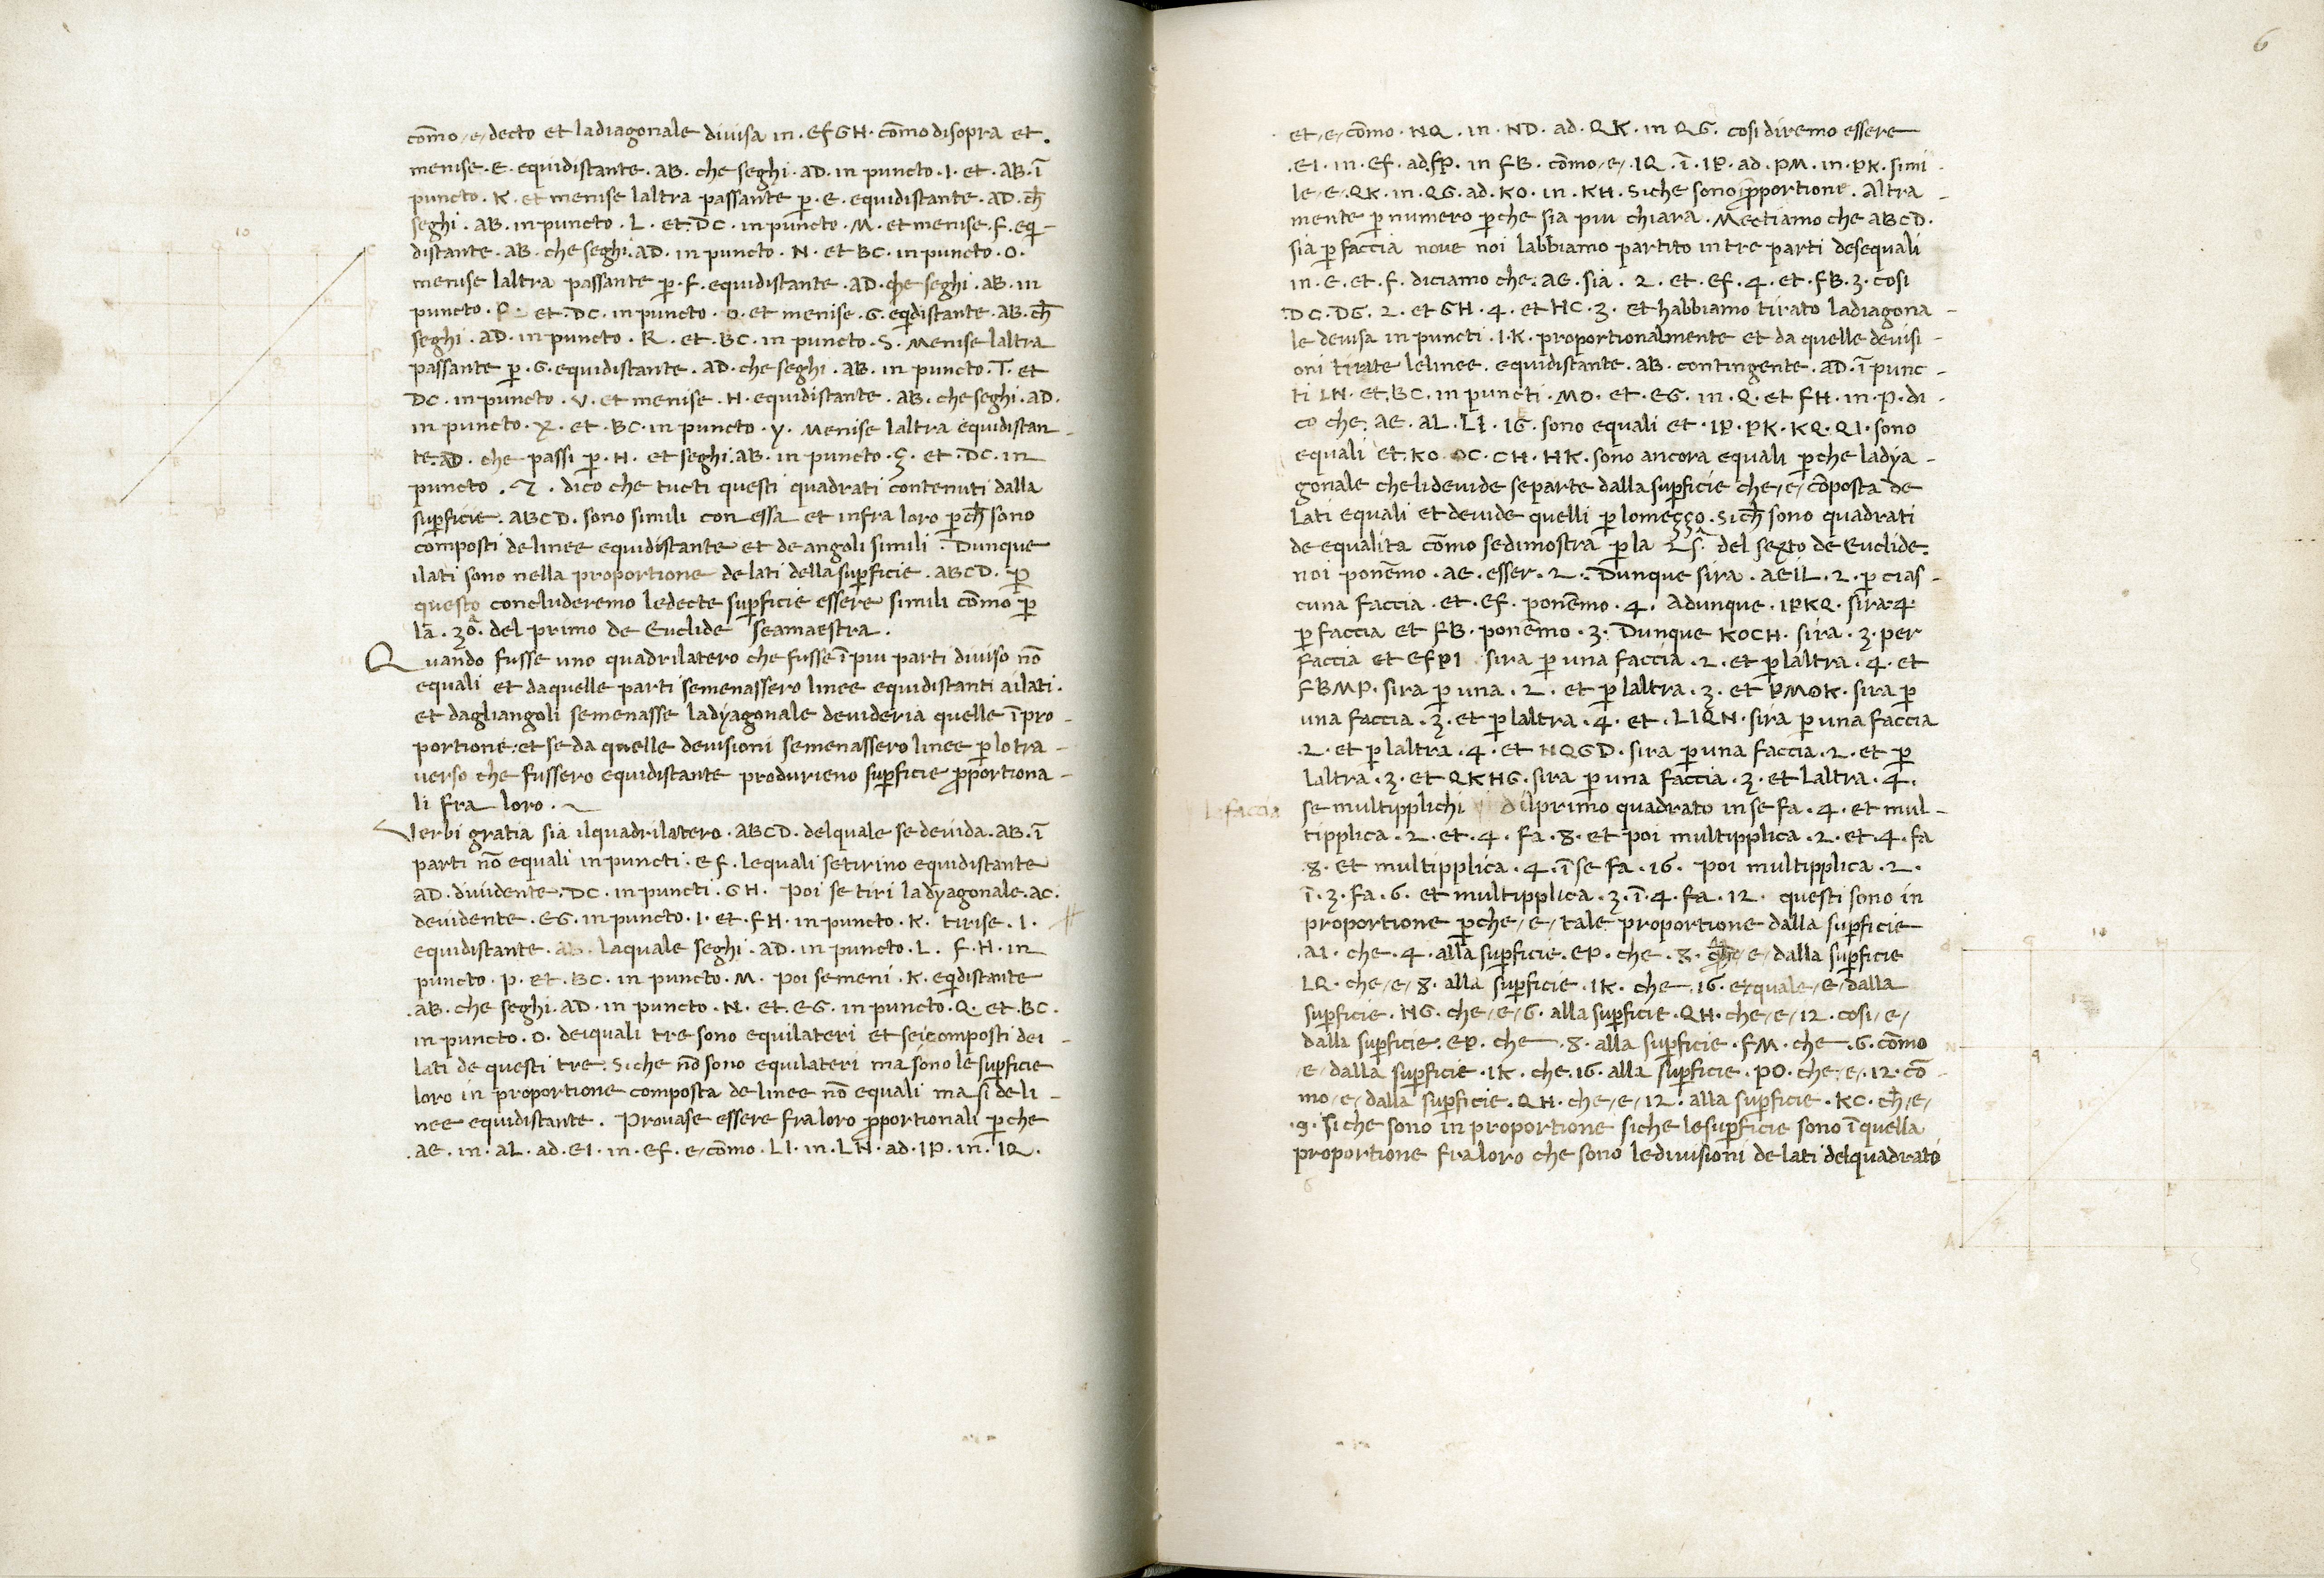 com̄o e decto et ladiagonale diuisa in . EFGH . com̄o disopra et .
menise . E . equidistante . AB . che seghi . AD . in puncto . I . et . AB . ī
puncto . K . et menise laltra passante p̄ . E . equidistante . AD . ch̄
seghi . AB . in puncto . L . et . DC . in puncto . M . et menise . F . eq̄i-
distante . AB . che seghi . AD . in puncto . N . et BC . in puncto . O .
menise laltra passante p̄ . F . equidistante . AD . che seghi . AB . in
puncto . et . DC . in puncto . et menise . G . eq̄idistante . AB . ch̄
seghi . AD . in puncto . R . et . BC . in puncto . S . Menise laltra
passante p̄ . G . equidistante . AD . che seghi . AB . in puncto . T . et
DC . in puncto . V . et menise . H . equidistante . AB . che seghi . AD .
in puncto . X . et . BC . in puncto . Y . Menise laltra equidistan-
te . AD . che passi p̄ . H . et seghi . AB . in puncto . et . DC . in
puncto . dico che tucti questi quadrati contenuti dalla
sup̄ficie . ABCD . sono simili con essa et infra loro p̄ch̄ sono
composti delinee equidistante et de angoli simili . Dunque
ilati sono nella proportione delati della sup̄ficie . ABCD . p̄
questo concluderemo ledecte sup̄ficie essere simili com̄o p̄
la . 30ª . del primo de Euclide seamaestra .
Quando fusse uno quadrilatero che fusse ī piu parti diuiso nō
equali et daquelle parti semenassero linee equidistanti ailati .
et dagliangoli semenasse ladyagonale deuideria quelle ī pro-
portione . et se da quelle deuisioni semenassero linee p̄ lo tra-
uerso che fussero equidistante produrieno sup̄ficie p̄portiona-
li fra loro .
Verbi gratia sia ilquadrilatero . ABCD . delquale se deuida . AB . ī
parti nō equali in puncti . EF . lequali setirino equidistante
AD . diuidente . DC . in puncti . GH . Poi se tiri ladyagonale . AC .
deuidente . EG . in puncto . I . et . FH . in puncto . K . tirise . I .
equidistante . AB . laquale seghi . AD . in puncto . L . F . H . in
puncto . P . et . BC . in puncto . M . Poi semeni . K . eq̄idistante
. AB . che seghi . AD . in puncto . N . et . EG . in puncto . Q . et . BC .
in puncto . O . deiquali tre sono equilateri et sei composti dei
lati de questi tre . Siche nō sono equilateri ma sono le sup̄ficie
loro in proportione composta de linee nō equali ma si de li-
nee equidistante . Prouase essere fra loro p̄portionali p̄che
. AE . in . AL . ad . EI . in . EF . e com̄o . LI . in . LN . ad . IP . in . IQ .
6
et e com̄o . NQ . in . ND . ad . QK . in QG . cosi diremo essere
. EI . in . EF . ad . FP . in FB . com̄o e . IQ . ī . IP . ad . PM . in . PK . simi-
le . E . QK . in . QG . ad . KO . in . KH . Siche sono p̄portione . Altra-
mente p̄ numero p̄che sia piu chiara . Mectiamo che ABCD .
sia p̄ faccia noue noi labbiamo partito in tre parti desequali
in . E . et . F . diciamo che . AE . sia . 2 . et . EF . 4 . et . FB . 3 . cosi
. DC . DG . 2 . et GH . 4 . et HC . 3 . et habbiamo tirato ladiagona-
le deuisa in puncti . I . K . proportionalmente et da quelle deuisi-
oni tirate lelinee . equidistante . AB . contingente . AD . ī punc-
ti LN . et . BC . in puncti . MO . et . EG . in . Q . et FH . in . P . di-
co che . AE . AL . LI . IG . sono equali et . IP . PK . KQ . QI . sono
equali et . KO . OC . CH . HK . sono ancora equali p̄che ladya-
gonale chelideuide separte dalla sup̄ficie che e cōposta de
lati equali et deuide quelli p̄ lomeççο . Sich̄ sono quadrati
de equalita com̄o sedimostra p̄ la del sexto de Euclide .
noi ponemo . AE . esser . 2 . Dunque sira . AEIL . 2 . p̄ cias-
cuna faccia . et . EF . ponemo . 4 . Adunque . IPKQ . sira . 4 .
p̄ faccia et FB . ponemo . 3 . Dunque KOCH . sira . 3 . per
faccia et EFPI sira p̄ una faccia . 2 . et p̄ laltra . 4 . et
FBMP . sira p̄ una . 2 . et p̄ laltra . 3 . et PMOK . sira p̄
una faccia . 3 . et p̄ laltra . 4 . et . LIQN . sira p̄ una faccia
. 2 . et p̄ laltra . 4 . et NQGD . sira p̄ una faccia . 2 . et p̄
laltra . 3 . et QKHG . sira p̄ una faccia . 3 . et laltra . 4 .
se multipplichi dilprimo quadrato in se fa . 4 . et mul-
tipplica . 2 . et . 4 . fa . 8 . et poi multipplica . 2 . et . 4 . fa
. 8 . et multipplica . 4 . ī se fa . 16 . Poi multipplica . 2 .
ī . 3 . fa . 6 . et multipplica . 3 . ī . 4 . fa . 12 . questi sono in
proportione p̄che e tale proportione dalla sup̄ficie
. AI . che . 4 . alla sup̄ficie . EP . che . 8 . e dalla sup̄ficie
LQ . che e 8 . alla sup̄ficie . IK . che . 16 . et quale e dalla
sup̄ficie . NG . che e 6 . alla sup̄ficie . QH . che e 12 . cosi e
dalla sup̄ficie . EP . che . 8 . alla sup̄ficie . FM . che . 6 . com̄o
e dalla sup̄ficie . IK . che . 16 . alla sup̄ficie . PO . che . e . 12 . cō-
mo e dalla sup̄ficie . QH . che e 12 . alla sup̄ficie . KC . ch̄ e
. 9 . Siche sono in proportione siche le sup̄ficie sono ī quella
proportione fraloro che sono ledivisioni de lati delquadrato